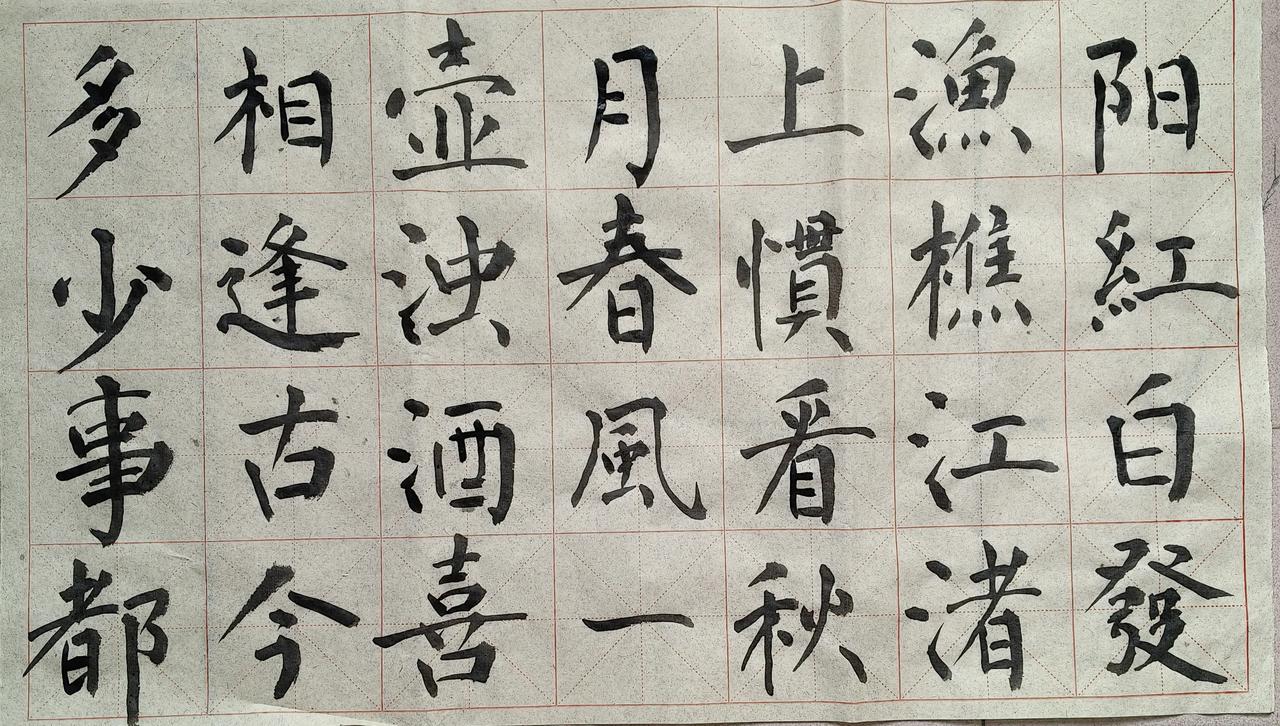 阳紅白發
漁樵江渚
上慣看秋
月春風一
壺浊酒喜
相逢古今
多少事都